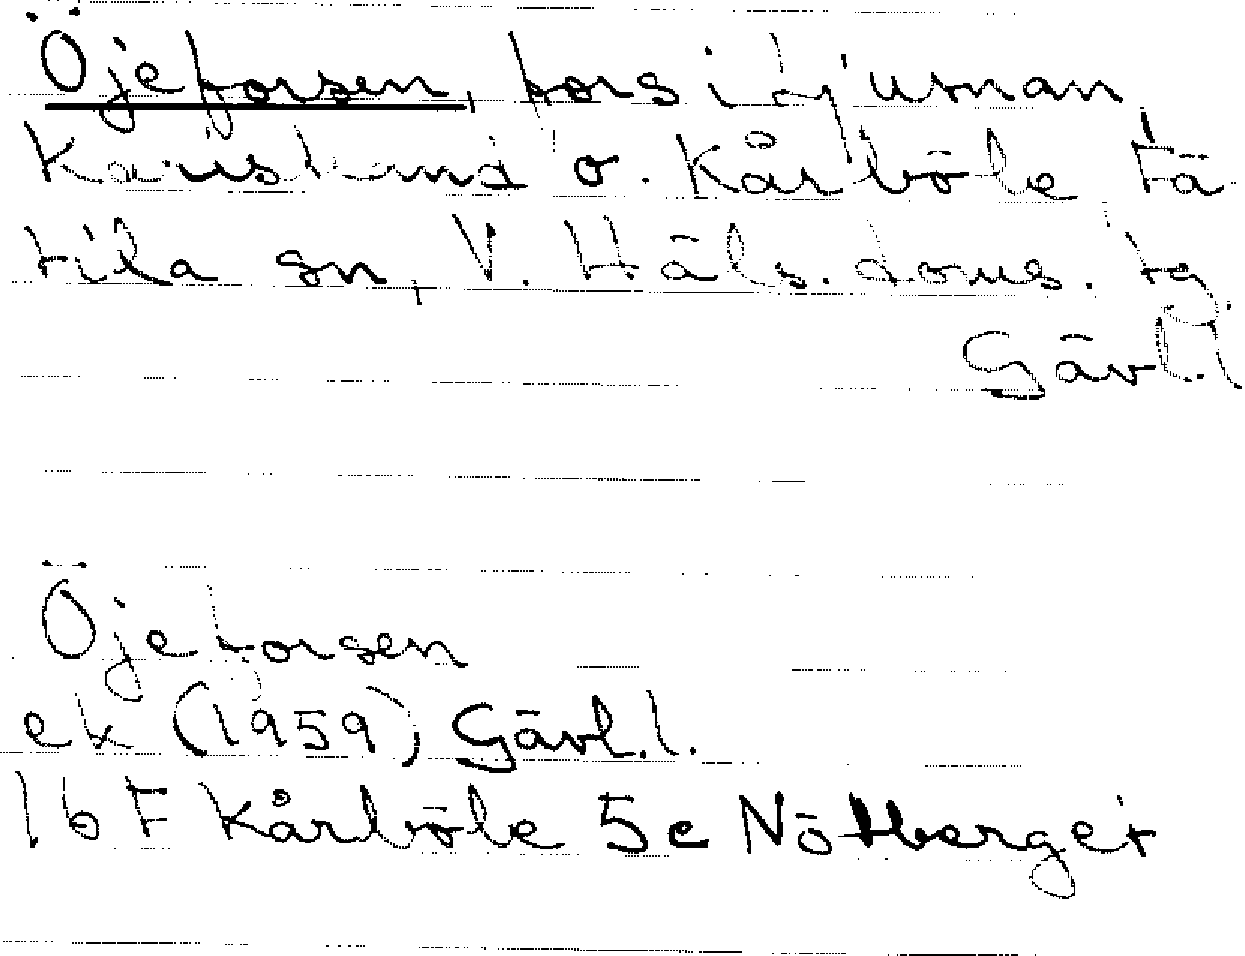 Öjeforsen, fors i Ljusnan,
Kårböle Fä
rila sn, V. Häls. doms. tg.
Gävl.l
Öjeforsen
ek (1959) Gävl.l.
16 F Kårböle 5e Nötberget